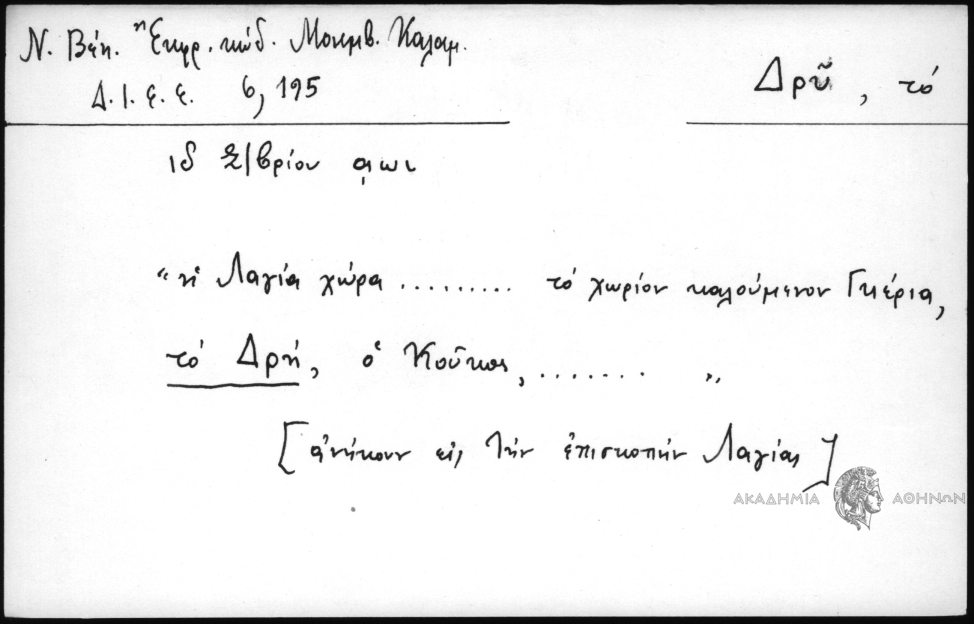 Ν. Βέη. Ἔκφρ. κώδ. Μονεμβ. Καλαμ.
Δ. Ι. Ε. Ε. 6, 195
Δρῦ, τό
ιδ 2/βρίου αωι
"ἡ Λαγία χώρα ......... τό χωρίον καλούμενον Γκέρια,
τό Δρή, ὁ Κοῦκος, ....... "
[ἀνήκουν εἰς τήν ἐπισκοπήν Λαγίας]
ΑΚΑΔΗΜΙΑ ΑΘΗΝΩΝ